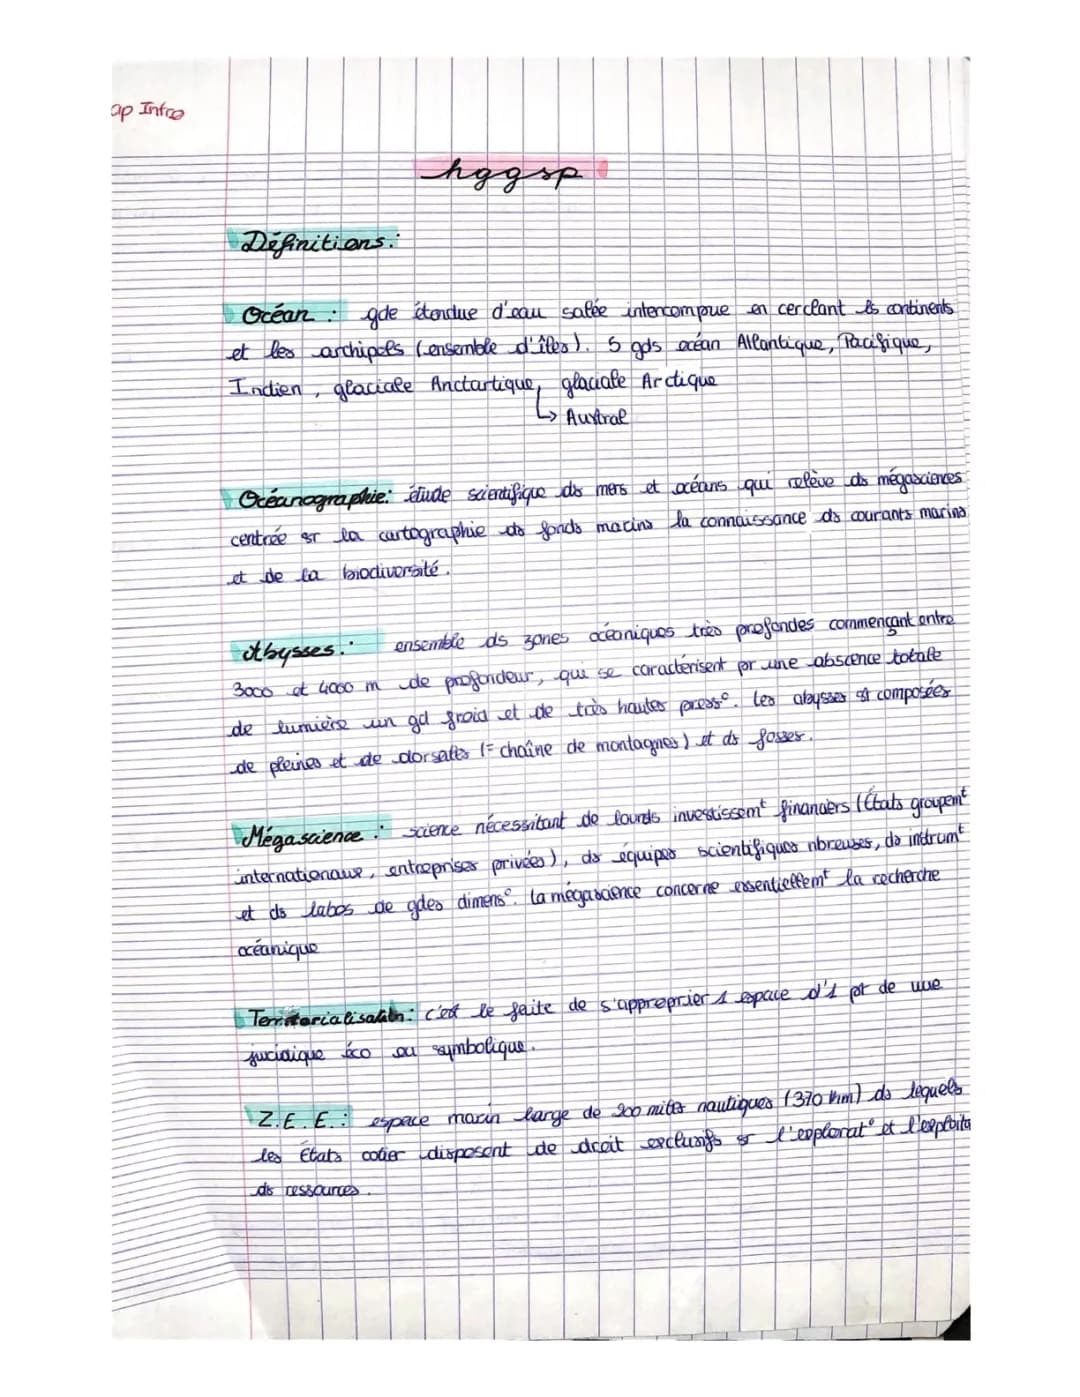 ap Intro
hggsp
Définitions:
Océan : gde étendue d'eau salée intercompue en cerclant ls continents
et les archipels (ensemble d'îles). 5 gds océan Atlantique, Pacifique,
Indien, glaciale Anctartique, glaciale Arctique
↳ Austral
Océanographie: étude scientifique ds mers et océans qui relève ds mégasciences
centrée sr la cartographie ds fonds marins la connaissance ds courants marins
et de la biodiversité.
Abysses: ensemble ds zones océaniques très profondes commençant entre
3000 et 4000 m de profondeur, qui se caractérisent pr une abscence totale
de lumière un gd froid et de très hautes press°. les abysses st composées
de pleines et de dorsales (= chaîne de montagnes) et ds fosses.
Mégascience : science nécessitant de lourds investissemt financiers (États groupemt
internationaux, entreprises privées), ds équipes scientifiques nbreuses, ds instrumt
et ds labos de gdes dimens°. la mégascience concerne essentiellemt la recherche
océanique
Territorialisation: c'est le faite de s'approprier 1 espace d'1 pt de vue
juridique éco ou symbolique.
Z.E.E.: espace marin large de 200 miles nautiques (370 km) ds lequels
les États cotier disposent de droit exclusifs sr l'explorat° et l'exploita
ds ressources.